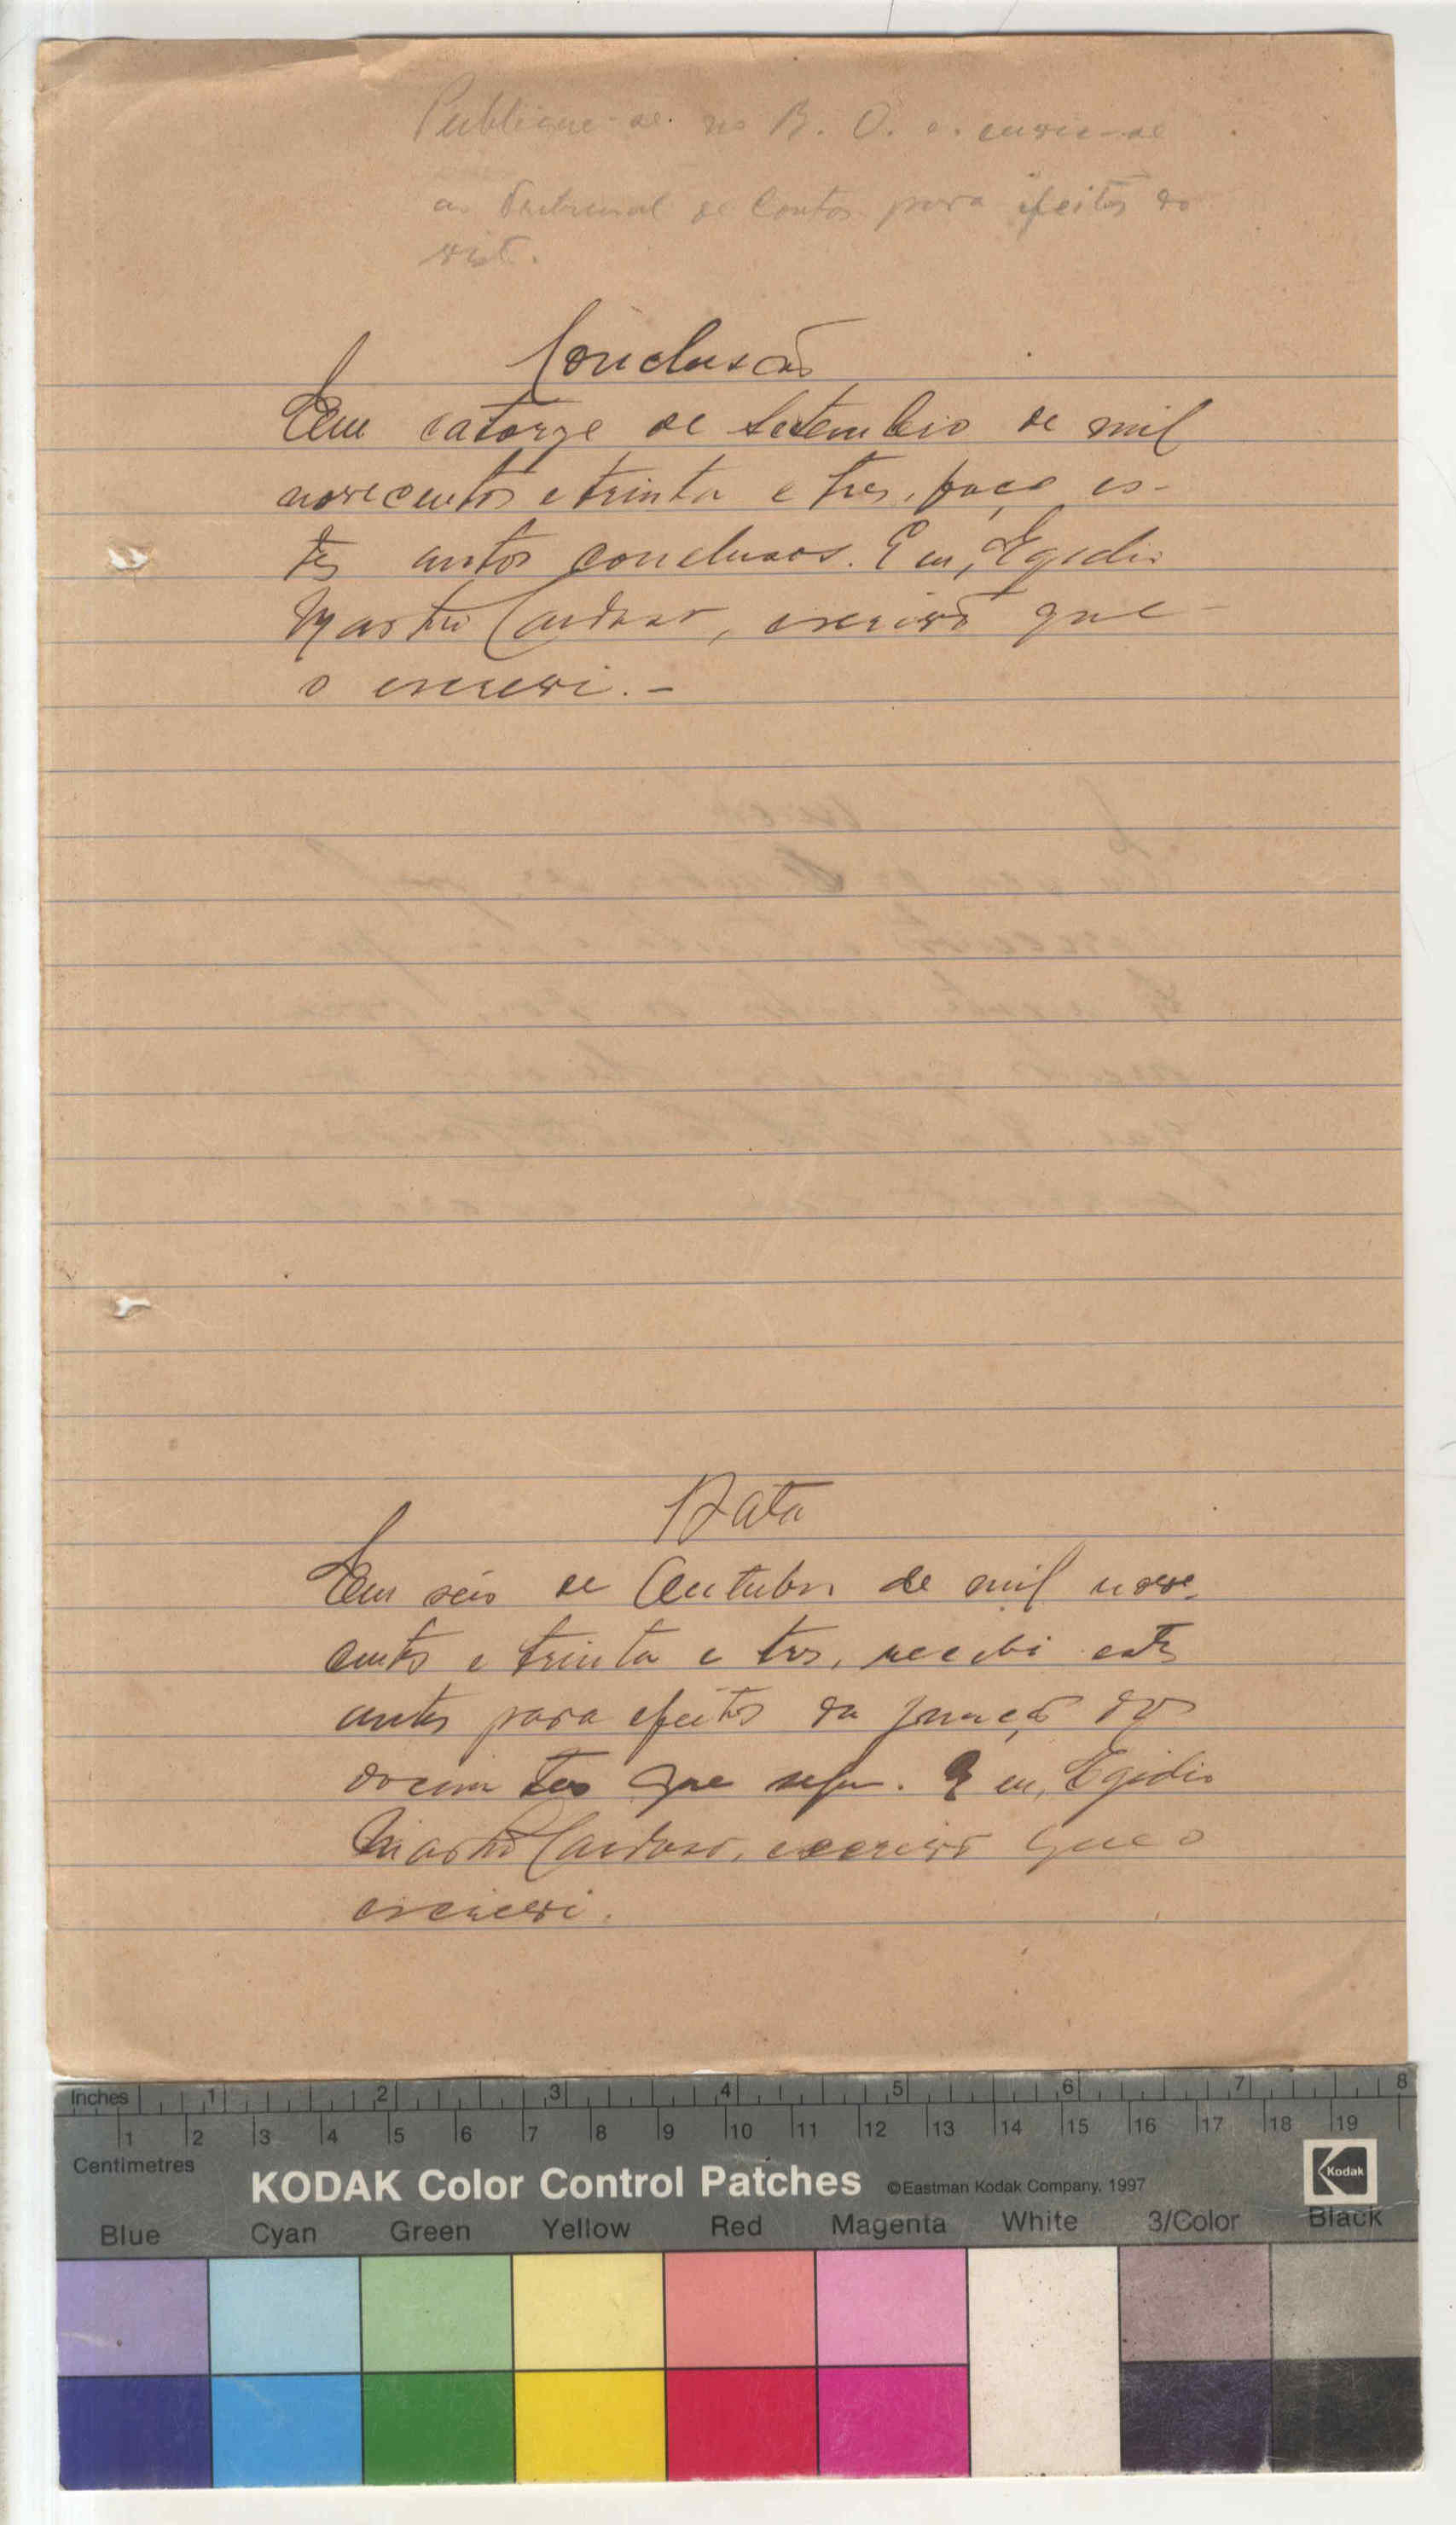 Publique-se no B. O. e envie-se
ao Tribunal de Contas para efeitos do
visto.
Conclusão
Em catorze de Setembro de mil
novecentos e trinta e tres, faço es-
tes autos conclusos. E eu, Egidio
Cardoso, escrivão que
o escrevi. -
Data
Em seis de Outubro de mil nove-
centos e trinta e tres, recebi estes
autos para efeitos da junção dos
que segue. E eu, Egidio
Cardoso, escrivão que o
escrevi.
Inches 1 2 3 4 5 6 7 8
1 2 3 4 5 6 7 8 9 10 11 12 13 14 15 16 17 18 19
Centimetres
KODAK Color Control Patches ©Eastman Kodak Company, 1997 Kodak
Blue Cyan Green Yellow Red Magenta White 3/Color Black